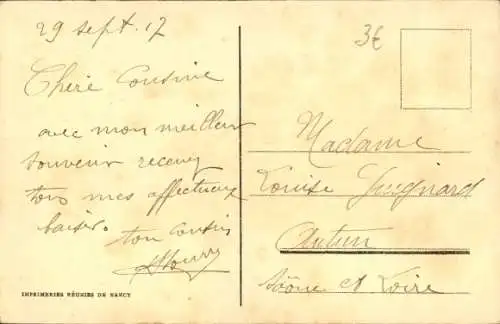 29 sept. 17
3€
Chère Cousine
avec mon meilleur
souvenir recevez
tous mes affectueux
baisers.
ton cousin
IMPRIMERIES RÉUNIES DE NANCY
Madame
Louise Guignard
Autun
Saône et Loire